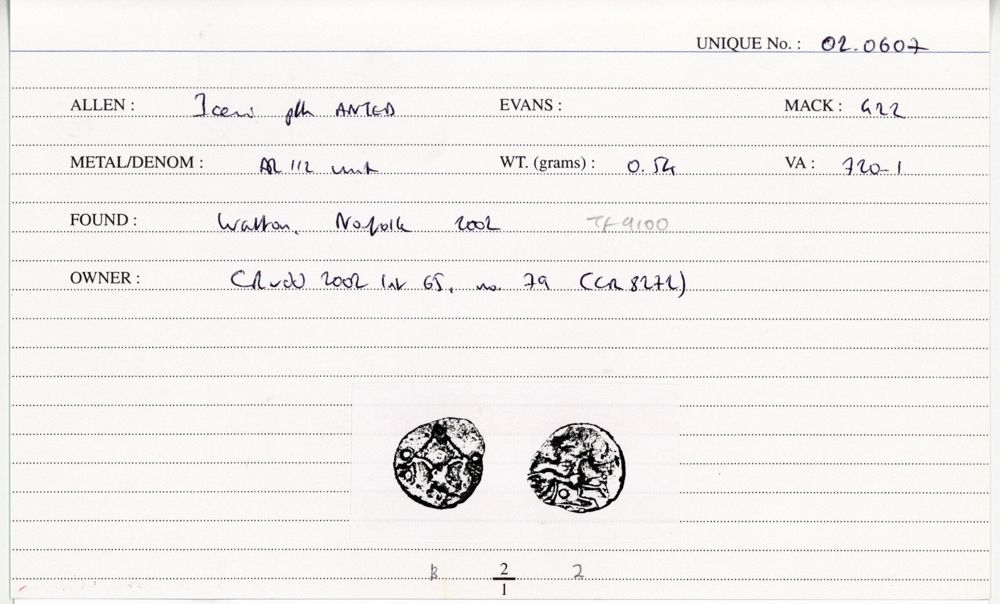 UNIQUE No. : 02.0607
ALLEN : Iceni ANTED EVANS : MACK : 422
METAL/DENOM : AR 1/2 unit WT. (grams) : 0.54 VA : 720-1
FOUND : Watton, Norfolk 2002 TF 9100
OWNER : CR vdd 2002 list 65, no. 79 (CR 8272)
B 2 2
1